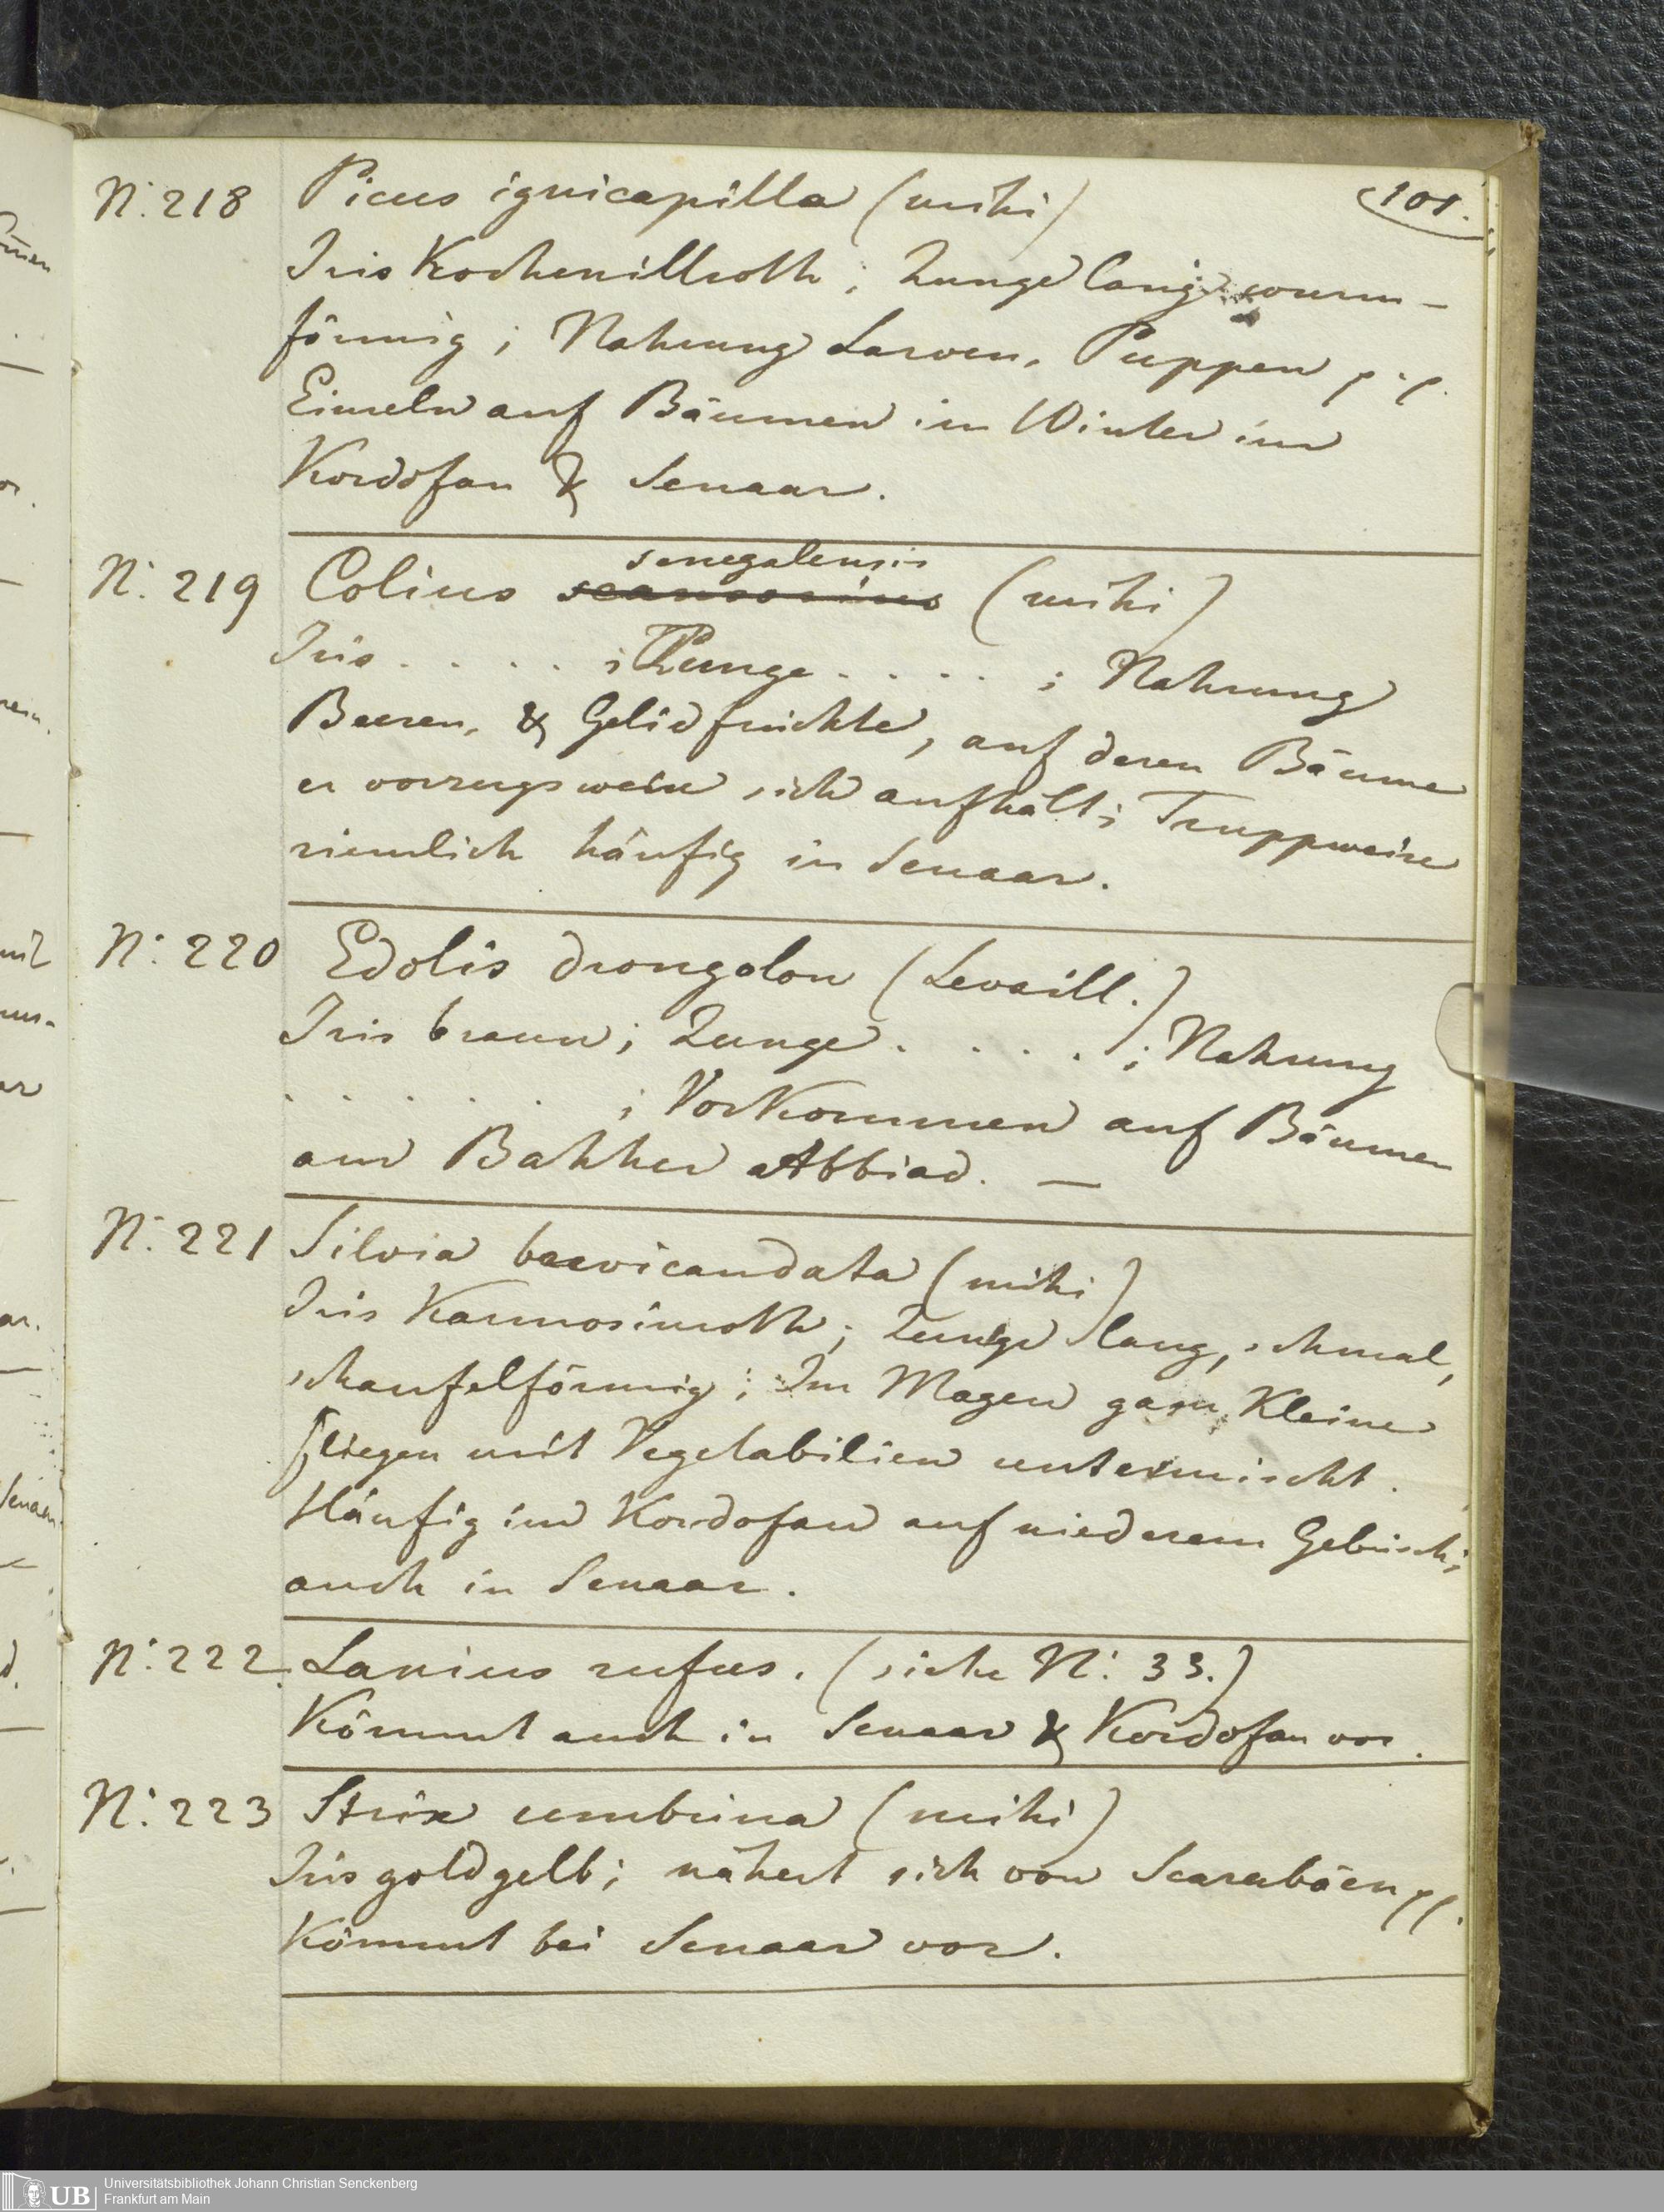 101.
N: 218 Picus ignicapilla (mihi)
Iris Kochenillroth; Zunge lang wurm-
förmig; Nahrung Larven, Puppen p.p.
Einzeln auf Bäumen im Winter im
Kordofan & Senaar.
senegalensis
N: 219 Colius scansorius (mihi)
Iris . . . . ; Zunge . . . . ; Nahrung
Beeren, & Gelidfrüchte, auf deren Bäume
er vorzugsweise sich aufhält; Truppweise
ziemlich häufig in Senaar.
N: 220 Edolis drongolon (Levaill.)
Iris braun; Zunge . . . . ; Nahrung
. . . . . . ; Vorkommen auf Bäumen
am Bahher Abbiad. —
N: 221 Silvia brevicaudata (mihi)
Iris Karmosinroth; Zunge lang, schmal,
schaufelförmig; Im Magen ganz Kleine
fliegen mit Vegetabilien untermischt.
Häufig im Kordofan auf niederem Gebüsch;
auch in Senaar.
N: 222. Lanius rufus. (siehe N: 33.)
Kömmt auch in Senaar & Kordofan vor.
N: 223 Strix umbrina (mihi)
Iris goldgelb; nähert sich von Scarabäen pp.
Kömmt bei Senaar vor.
UB
Universitätsbibliothek Johann Christian Senckenberg
Frankfurt am Main